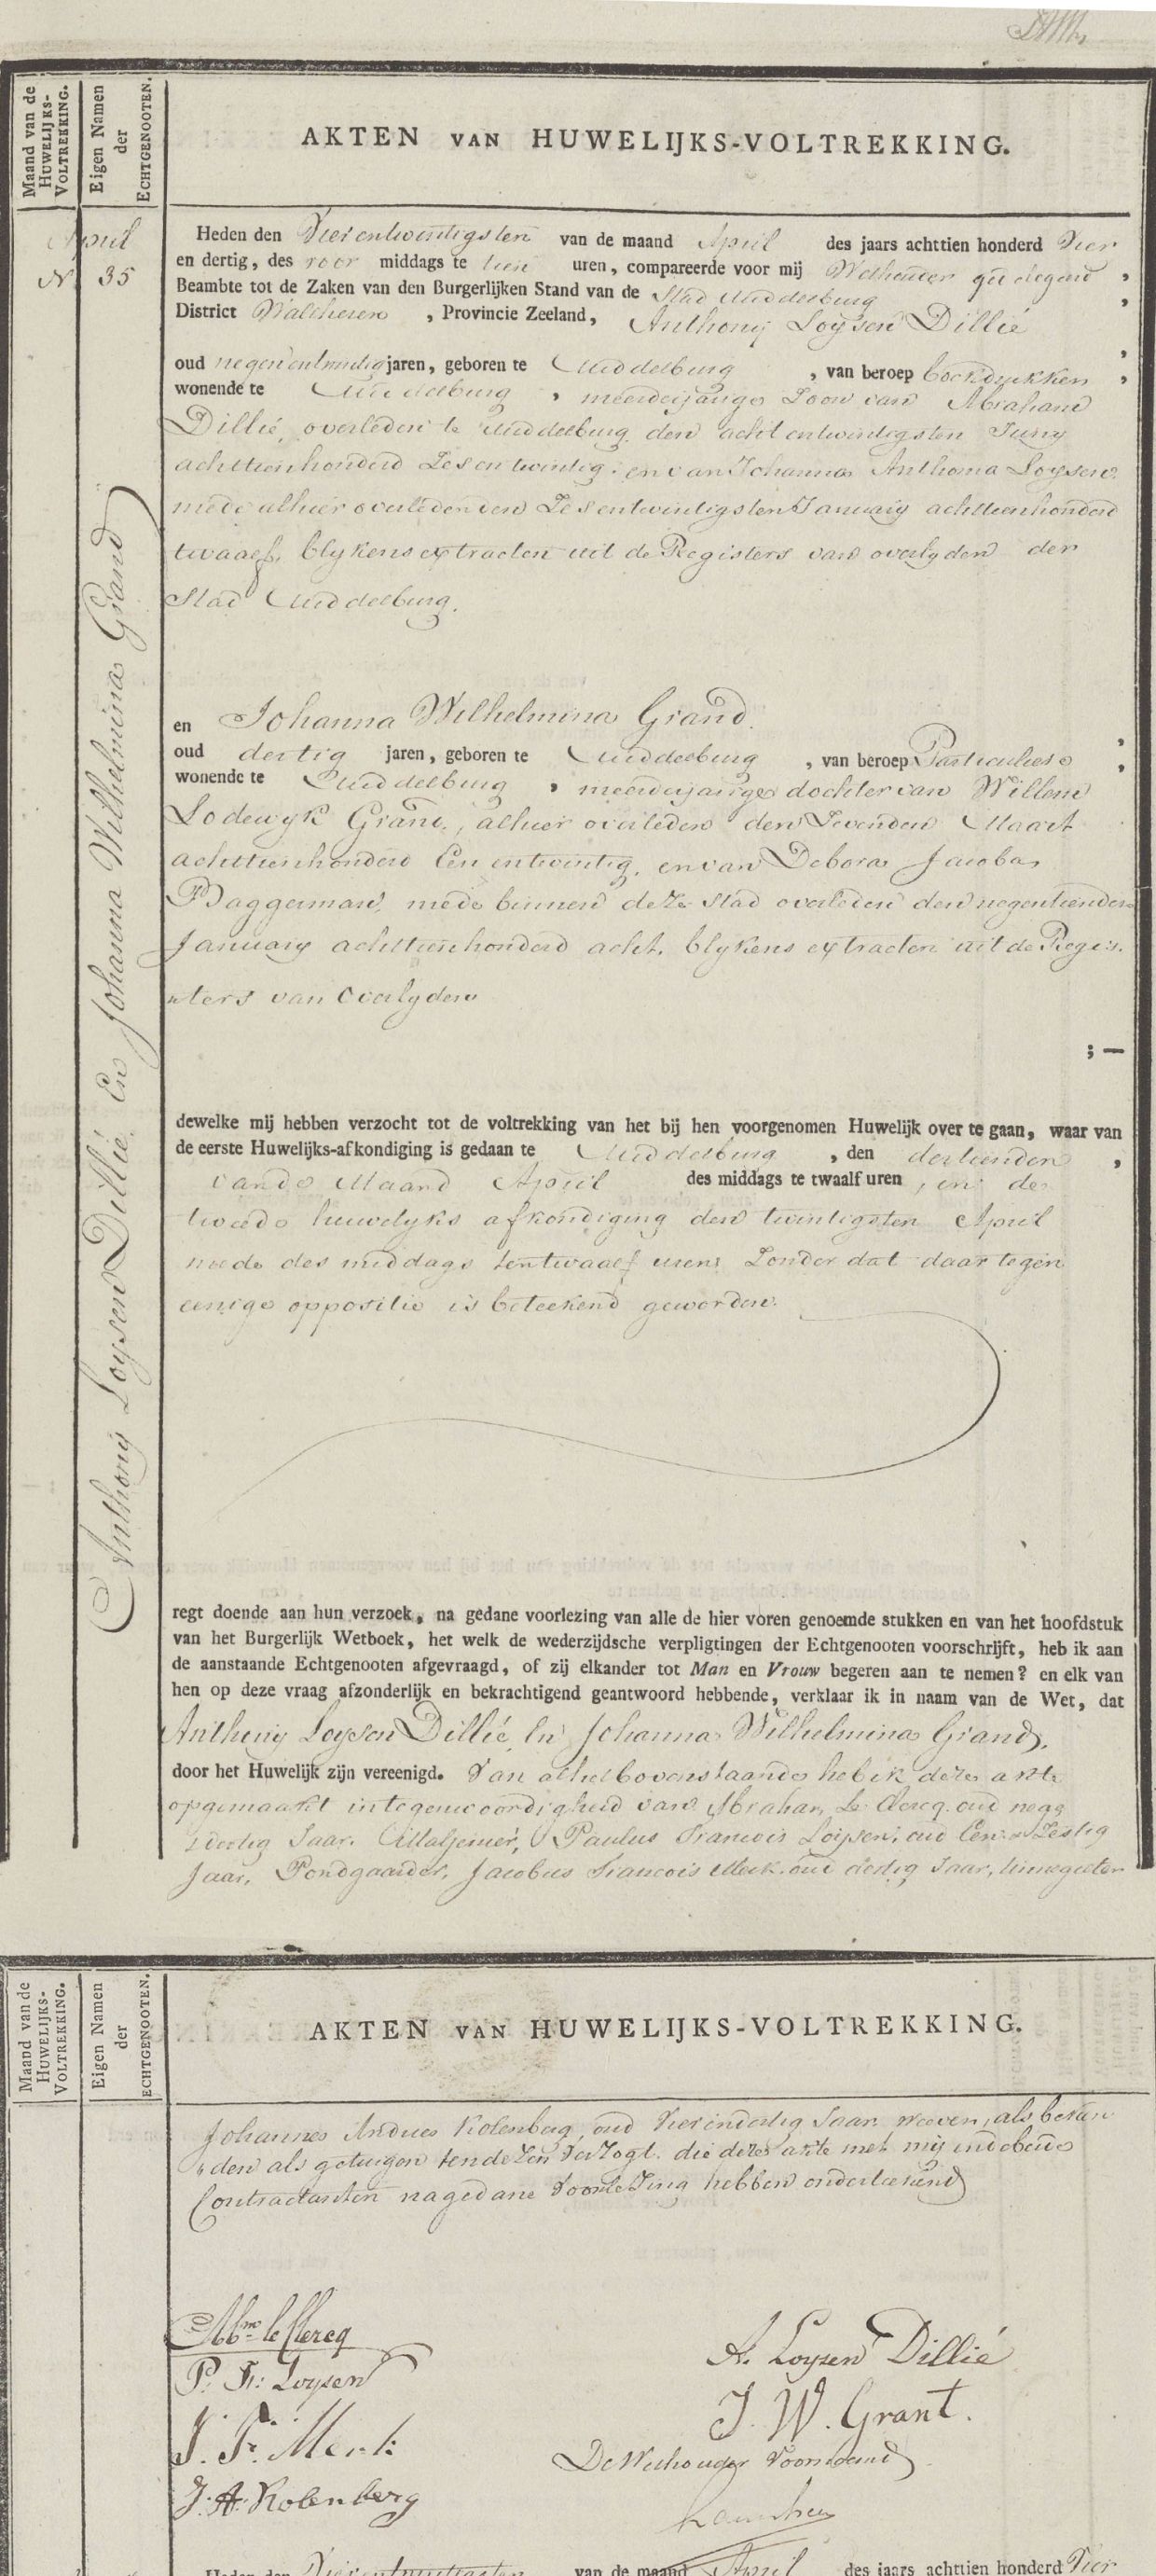 Maand van de HUWELIJKS-VOLTREKKING.
Eigen Namen der ECHTGENOOTEN.
AKTEN VAN HUWELIJKS-VOLTREKKING.
April
N. 35
Anthonij Loijsen Dillié. En Johanna Wilhelmina Grand
Heden den Vierentwintigsten van de maand April des jaars achttien honderd Vier
en dertig, des voor middags te tien uren, compareerde voor mij Wethouder gedelegeerd,
Beambte tot de Zaken van den Burgerlijken Stand van de Stad Middelburg,
District Walcheren, Provincie Zeeland, Anthonij Loijsen Dillié,
oud negenentwintig jaren, geboren te Middelburg, van beroep boekdrukker,
wonende te Middelburg, meerderjarige Zoon van Abraham
Dillié, overleden te Middelburg den acht entwintigsten Junij
achttienhonderd Zes en twintig: en van Johanna Anthonia Loijsen
mede alhier overleden den Zesentwintigsten Januarij achttienhonderd
twaalf, blykens extracten uit de Registers van overlyden der
Stad Middelburg.
en Johanna Wilhelmina Grand,
oud dertig jaren, geboren te Middelburg, van beroep Particuliere,
wonende te Middelburg, meerderjarige dochter van Willem
Lodewyk Grand, alhier overleden den Zevenden Maart
achttienhonderd Een entwintig, en van Debora Jacoba
Baggerman, mede binnen deze Stad overleden den negentienden
Januarij achttienhonderd acht, blykens extracten uit de Regis-
sters van Overlyden
; —
dewelke mij hebben verzocht tot de voltrekking van het bij hen voorgenomen Huwelijk over te gaan, waar van
de eerste Huwelijks-afkondiging is gedaan te Middelburg, den dertienden,
van de Maand April des middags te twaalf uren, en de
tweede huwelyks afkondiging den twintigsten April
mede des middags ten twaalf uren Zonder dat daar tegen
eenige oppositie is beteekend geworden.
regt doende aan hun verzoek, na gedane voorlezing van alle de hier voren genoemde stukken en van het hoofdstuk
van het Burgerlijk Wetboek, het welk de wederzijdsche verpligtingen der Echtgenooten voorschrijft, heb ik aan
de aanstaande Echtgenooten afgevraagd, of zij elkander tot Man en Vrouw begeren aan te nemen? en elk van
hen op deze vraag afzonderlijk en bekrachtigend geantwoord hebbende, verklaar ik in naam van de Wet, dat
Anthonij Loijsen Dillié, En Johanna Wilhelmina Grand,
door het Huwelijk zijn vereenigd. Van al het bovenstaande heb ik deze akte
opgemaakt in tegenwoordigheid van Abraham Le Clercq oud
dertig Jaar, Paulus Francois Loijsen, oud Een en Zestig
Jaar, Pondgaarder, Jacobus Francois Merk oud dertig Jaar, tinnegieter
Maand van de HUWELIJKS-VOLTREKKING.
Eigen Namen der ECHTGENOOTEN.
AKTEN VAN HUWELIJKS-VOLTREKKING.
Johannes Andries Kolenberg, oud Vierendertig Jaar wever, als bekan-
den als getuigen ten deze Verzogt. die deze akte met mij en de beide
Contractanten na gedane Voorlezing hebben onderteekend
Abm. le Clercq
P. Fr: Loysen
J. Fr. Merk
J. A. Kolenberg
A. Loysen Dillié
J. W. Grant.
De Wethouder Voornoemd
Heden den Vierentwintigsten van de maand April des jaars achttien honderd Vier